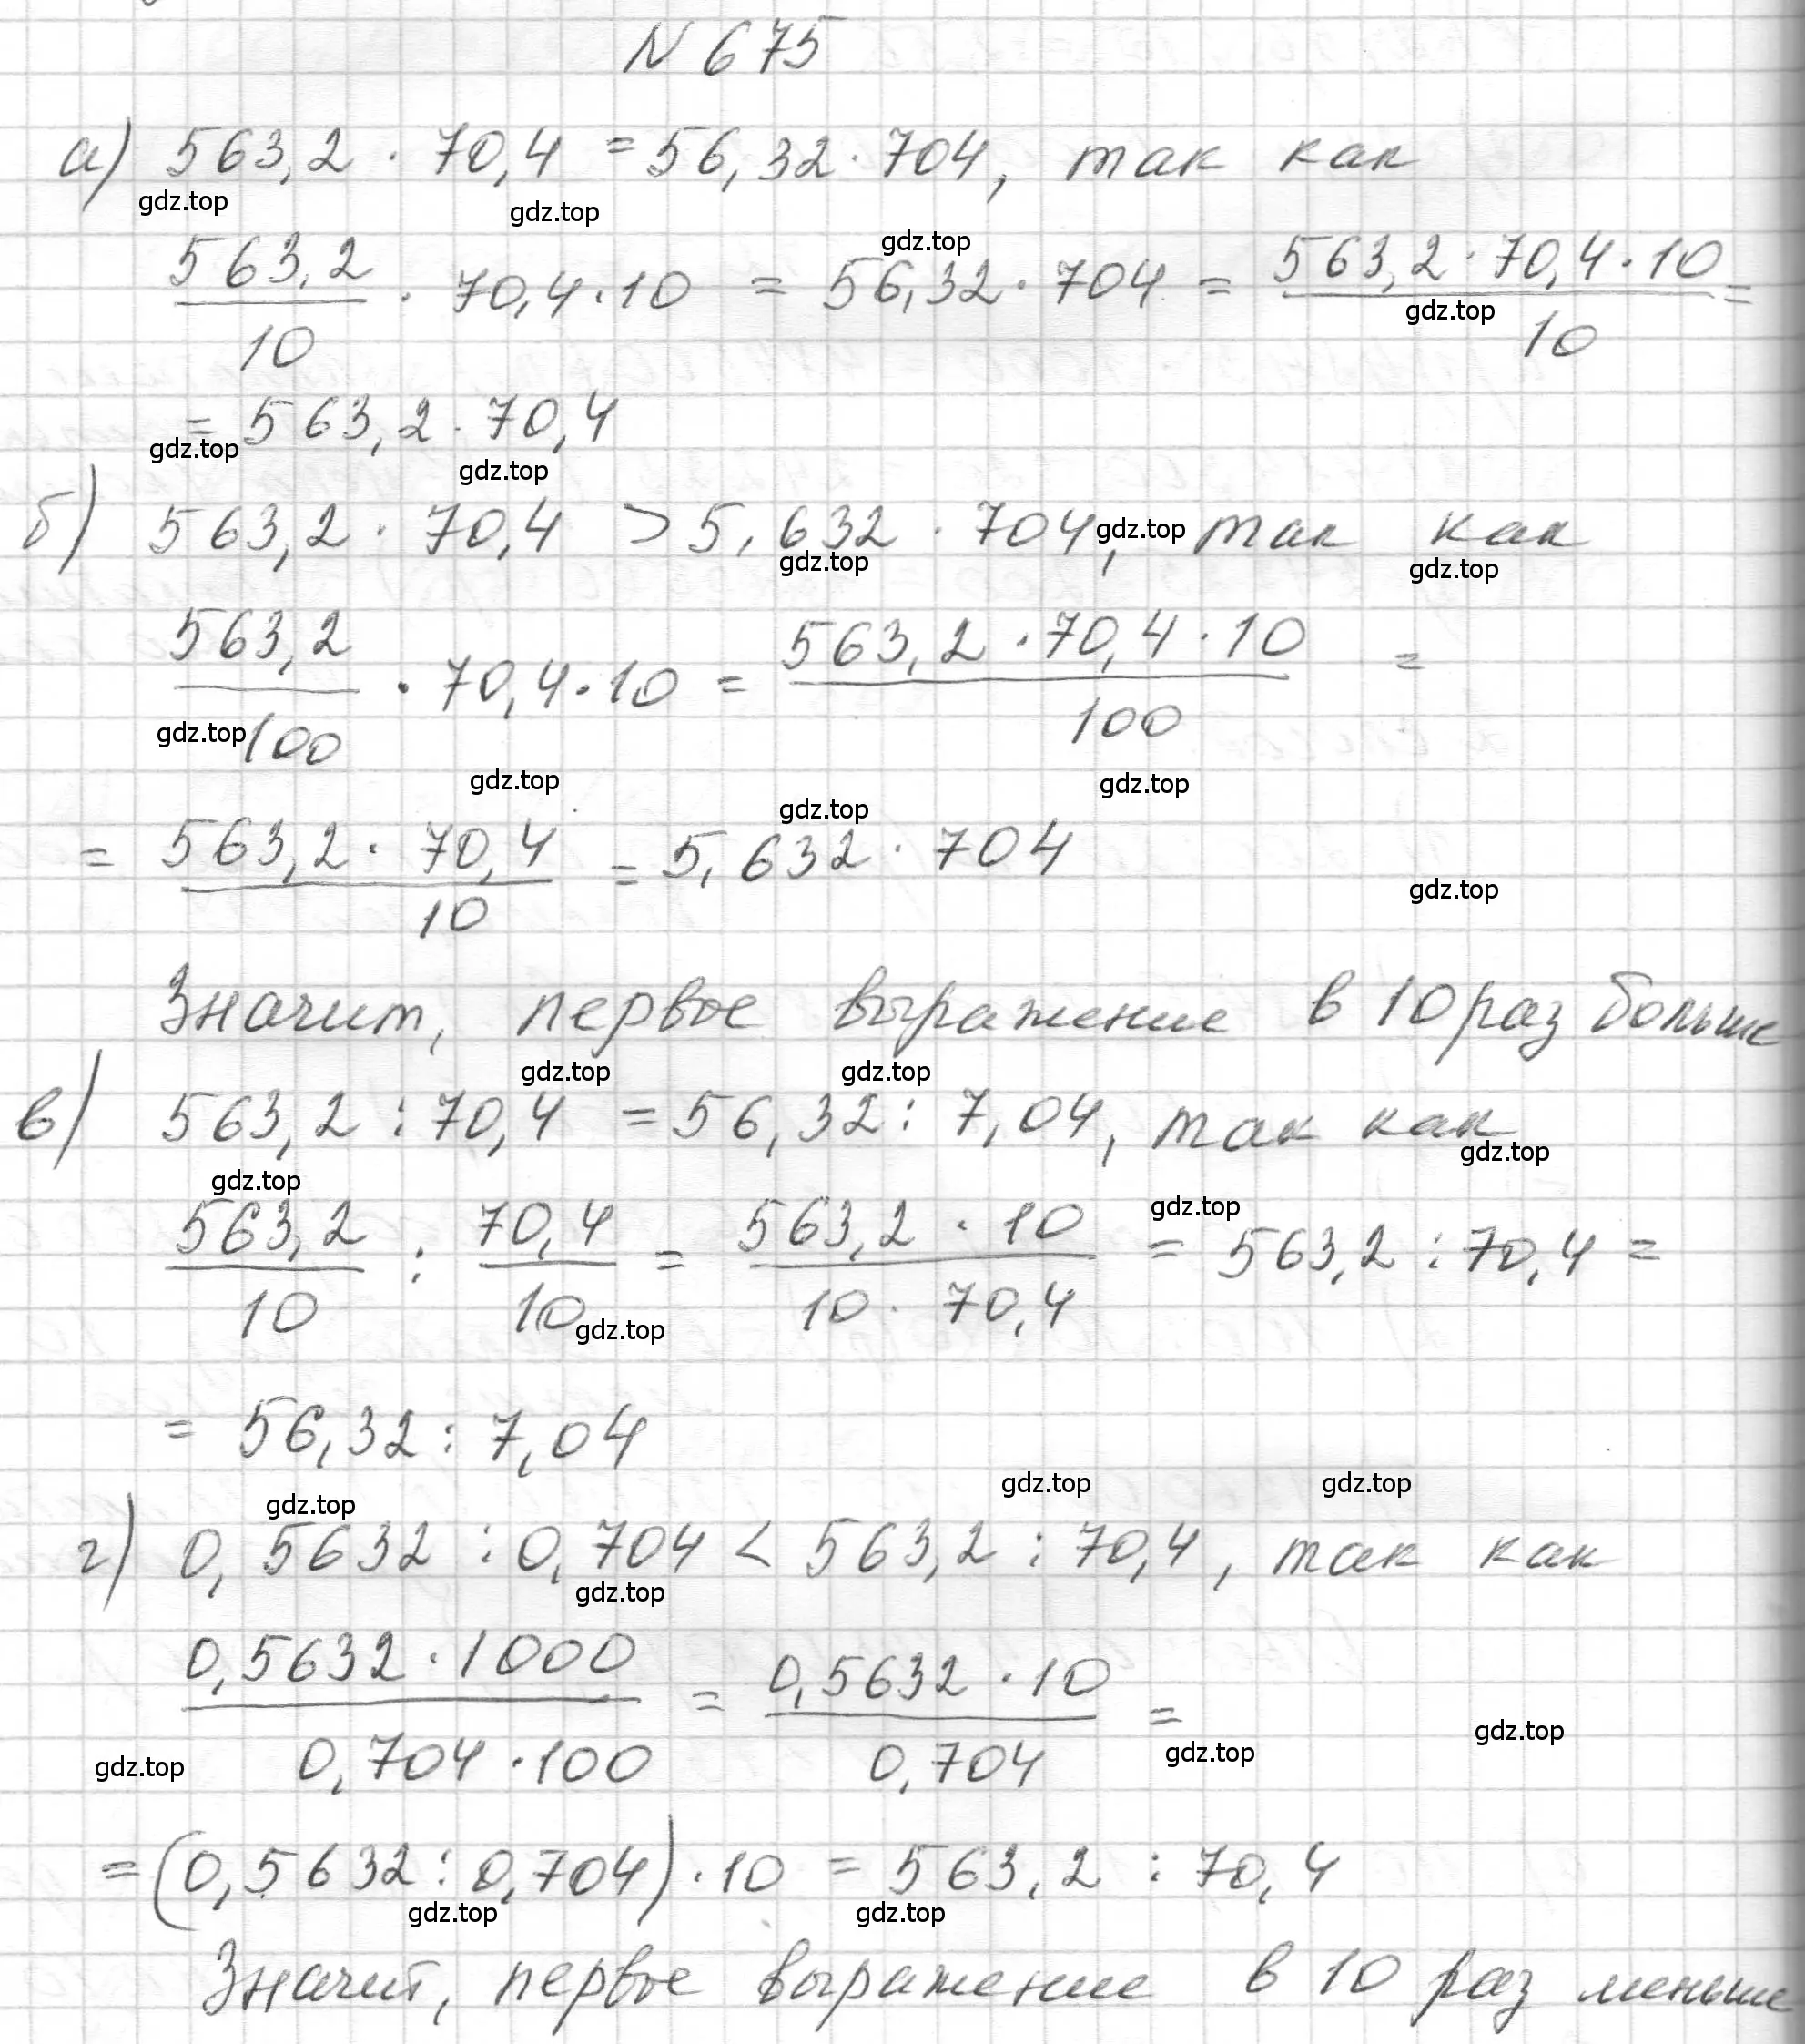 N 675
а) 563,2 · 70,4 = 56,32 · 704, так как
563,2/10 · 70,4 · 10 = 56,32 · 704 = 563,2 · 70,4 · 10/10 =
= 563,2 · 70,4
б) 563,2 · 70,4 > 5,632 · 704, так как
563,2/100 · 70,4 · 10 = 563,2 · 70,4 · 10/100 =
= 563,2 · 70,4/10 = 5,632 · 704
Значит, первое выражение в 10 раз больше
в) 563,2 : 70,4 = 56,32 : 7,04, так как
563,2/10 : 70,4/10 = 563,2 · 10/10 · 70,4 = 563,2 : 70,4 =
= 56,32 : 7,04
г) 0,5632 : 0,704 < 563,2 : 70,4, так как
0,5632 · 1000/0,704 · 100 = 0,5632 · 10/0,704 =
= (0,5632 : 0,704) · 10 = 563,2 : 70,4
Значит, первое выражение в 10 раз меньше